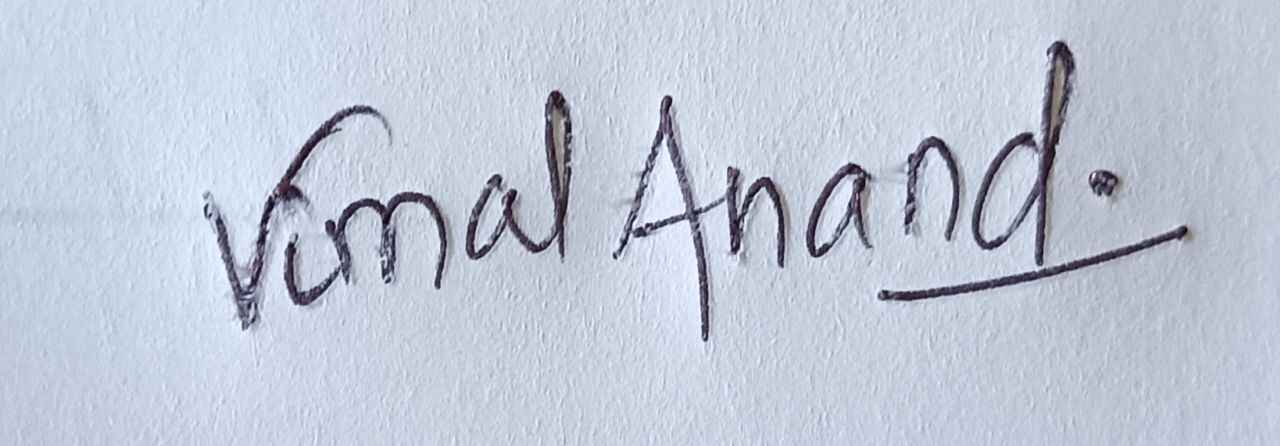 Vimal Anand.